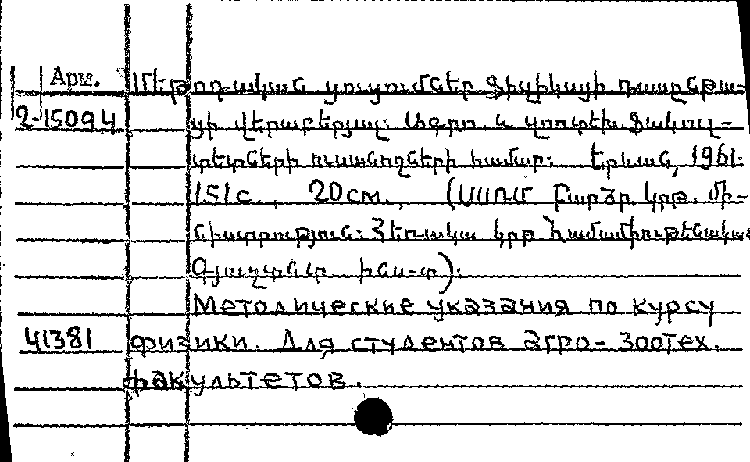 Арм. Մեթոդական ցուցումներ ֆիզիկայի դասընթա-
2-15094 ցի վերաբերյալ: Ագրո. և զոոտեխ. ֆակուլ-
տետների ուսանողների համար: Երևան, 1961.
151с., 20см., (ՍՍՌՄ Բարձր. կրթ. մի-
նիստրություն: Հեռակա կրթ. համամիութենական
Գյուղտնտ. ինս-տ):
Методические указания по курсу
41381 физики. Для студентов агро- зоотех.
факультетов.